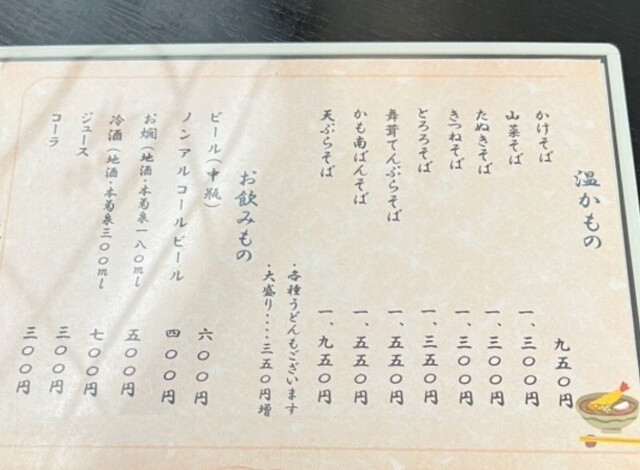 温かもの
かけそば 九五〇円
山菜そば 一、三〇〇円
たぬきそば 一、三〇〇円
きつねそば 一、三〇〇円
とろろそば 一、三五〇円
舞茸てんぷらそば 一、五五〇円
かも南ばんそば 一、五五〇円
天ぷらそば 一、九五〇円
・各種うどんもございます
・大盛り・・・・三五〇円増
お飲みもの
ビール(中瓶) 六〇〇円
ノンアルコールビール 四〇〇円
お燗(地酒・本菊泉一八〇ml 五〇〇円
冷酒(地酒・本菊泉三〇〇ml 七〇〇円
ジュース 三〇〇円
コーラ 三〇〇円